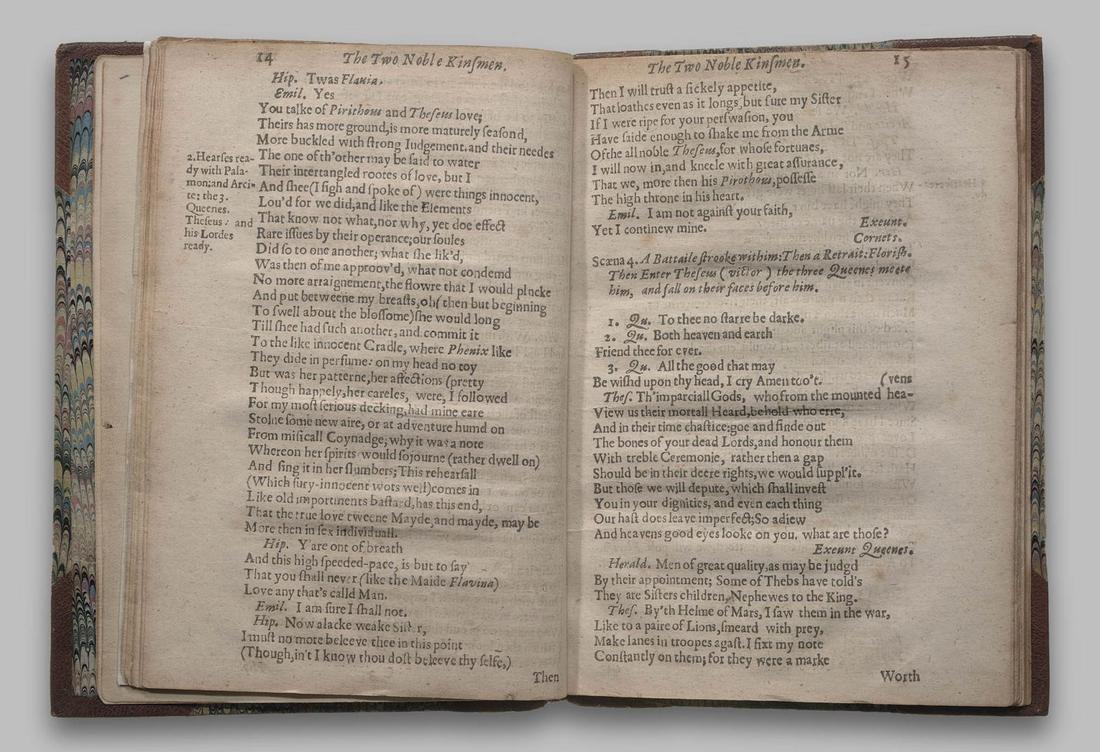 14 The Two Noble Kinſmen.
Hip. Twas Flauia.
Emil. Yes
You talke of Pirithous and Theſeus love;
Theirs has more ground, is more maturely ſeaſond,
More buckled with ſtrong Iudgement, and their needes
The one of th'other may be ſaid to water
2.Hearſes rea-
dy with Pala-
mon: and Arci-
te: the 3.
Queenes.
Theſeus: and
his Lordes
ready.
Their intertangled rootes of love, but I
And ſhee (I ſigh and ſpoke of) were things innocent,
Lou'd for we did, and like the Elements
That know not what, nor why, yet doe effect
Rare iſſues by their operance; our ſoules
Did ſo to one another; what ſhe lik'd,
Was then of me approov'd, what not condemd
No more arraignement, the flowre that I would plucke
And put betweene my breaſts, oh (then but beginning
To ſwell about the bloſſome) ſhe would long
Till ſhee had ſuch another, and commit it
To the like innocent Cradle, where Phenix like
They dide in perfume: on my head no toy
But was her patterne, her affections (pretty
Though happely, her careles, were, I followed
For my moſt ſerious decking, had mine eare
Stolne ſome new aire, or at adventure humd on
From miſicall Coynadge; why it was a note
Whereon her ſpirits would ſojourne (rather dwell on)
And ſing it in her ſlumbers; This rehearſall
(Which fury-innocent wots well) comes in
Like old importments baſtard, has this end,
That the true love tweene Mayde, and mayde, may be
More then in ſex individuall.
Hip. Y'are out of breath
And this high ſpeeded-pace, is but to ſay
That you ſhall never (like the Maide Flavina)
Love any that's calld Man.
Emil. I am ſure I ſhall not.
Hip. Now alacke weake Siſter,
I muſt no more beleeve thee in this point
(Though, in't I know thou doſt beleeve thy ſelfe,)
Then
The Two Noble Kinſmen. 15
Then I will truſt a ſickely appetite,
That loathes even as it longs, but ſure my Siſter
If I were ripe for your perſwaſion, you
Have ſaide enough to ſhake me from the Arme
Of the all noble Theſeus, for whoſe fortunes,
I will now in, and kneele with great aſſurance,
That we, more then his Pirothous, poſſeſſe
The high throne in his heart.
Emil. I am not againſt your faith,
Yet I continew mine. Exeunt.
Cornets.
Scæna 4. A Battaile ſtrooke withim: Then a Retrait: Floriſh.
Then Enter Theſeus (victor) the three Queenes meete
him, and fall on their faces before him.
1. Qu. To thee no ſtarre be darke.
2. Qu. Both heaven and earth
Friend thee for ever.
3. Qu. All the good that may
Be wiſhd upon thy head, I cry Amen too't. (vens
Theſ. Th'imparciall Gods, who from the mounted hea-
View us their mortall Heard, behold who erre,
And in their time chaſtice: goe and finde out
The bones of your dead Lords, and honour them
With treble Ceremonie, rather then a gap
Should be in their deere rights, we would ſuppl'it.
But thoſe we will depute, which ſhall inveſt
You in your dignities, and even each thing
Our haſt does leave imperfect; So adiew
And heavens good eyes looke on you, what are thoſe?
Exeunt Queenes.
Herald. Men of great quality, as may be judgd
By their appointment; Some of Thebs have told's
They are Siſters children, Nephewes to the King.
Theſ. By'th Helme of Mars, I ſaw them in the war,
Like to a paire of Lions, ſmeard with prey,
Make lanes in troopes agaſt. I fixt my note
Conſtantly on them; for they were a marke
Worth